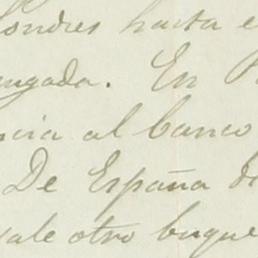 Londres hasta e
ngada. En P
ncia al banco
De España di
sale otro buque